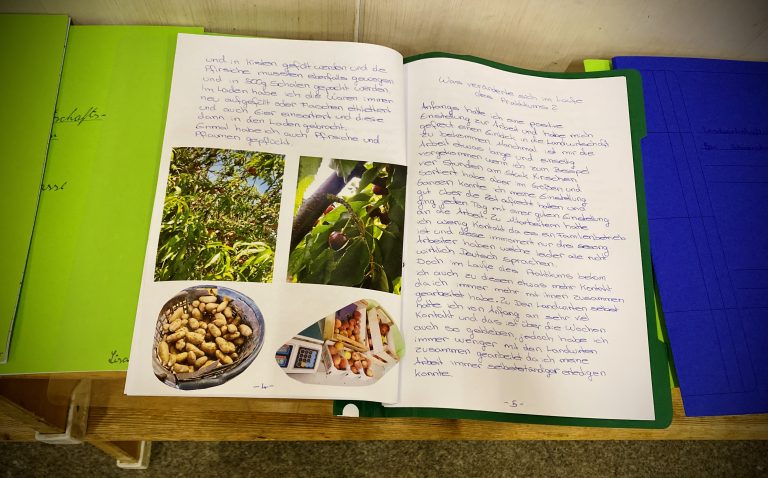 und in Kisten gefüllt werden und die
Pfirsiche mussten ebenfalls gewogen
und in 500g Schalen gepackt werden.
Im Laden habe ich die Waren immer
neu aufgefüllt oder Flaschen etikettiert
und auch Eier einsortiert und diese
dann in den Laden gebracht.
Einmal habe ich auch Pfirsiche und
Pflaumen gepflückt.
-4-
Was veränderte sich im Laufe
des Praktikums?
Anfangs hatte ich eine positive
Einstellung zur Arbeit und habe mich
gefreut einen Einblick in die Landwirtschaft
zu bekommen. Manchmal ist mir die
Arbeit etwas lange und einseitig
vorgekommen wenn ich zum Beispiel
vier Stunden am Stück Kirschen
sortiert habe aber im Großen und
Ganzen konnte ich meine Einstellung
gut über die Zeit aufrecht halten und
fing jeden Tag mit einer guten Einstellung
an die Arbeit. Zu Mitarbeitern hatte
ich wenig Kontakt da es ein Familienbetrieb
ist und diese momentan nur drei
Arbeiter haben welche leider alle nicht
wirklich Deutsch sprachen.
Doch im Laufe des Praktikums bekam
ich auch zu diesen etwas mehr Kontakt
da ich immer mehr mit ihnen zusammen
gearbeitet habe. Zu den Landwirten selbst
hatte ich von Anfang an sehr viel
Kontakt und das ist über die Wochen
auch so geblieben, jedoch habe ich
immer weniger mit den Landwirten
zusammen gearbeitet da ich meine
Arbeit immer selbstständiger erledigen
konnte.
-5-